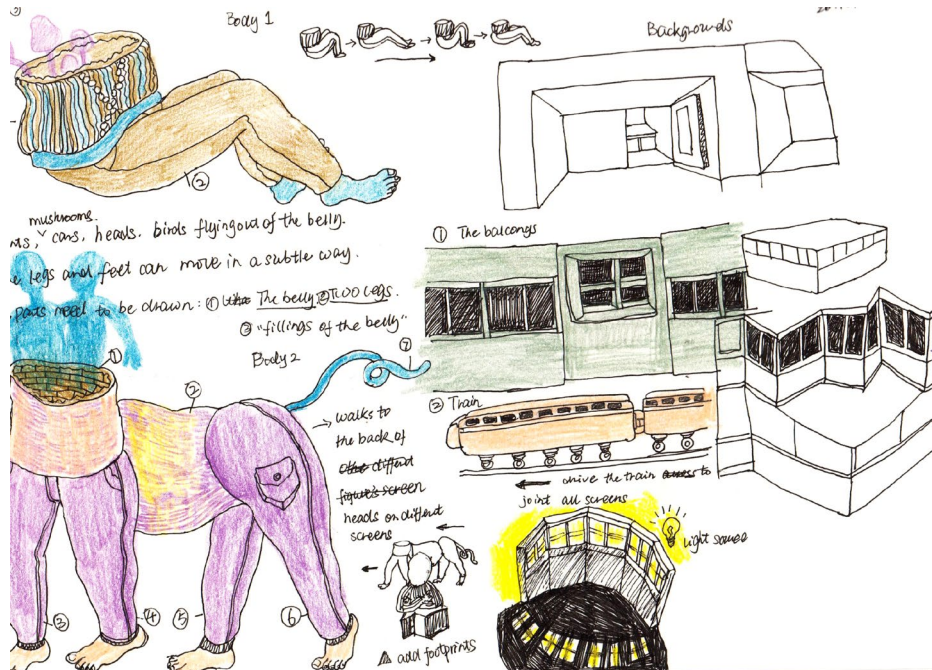 Body 1
Backgrounds
②
mushrooms.
cars, heads. birds flying out of the belly.
legs and feet can move in a subtle way.
parts need to be drawn: ① The belly ② Two legs.
③ "fillings of the belly"
Body 2
①
②
⑦
→ walks to
the back of
differed
figure's screen
heads on differed
screens
③
④
⑤
⑥
add footprints
① The balcongs
② Train
drive the train to
joint all screens
light source